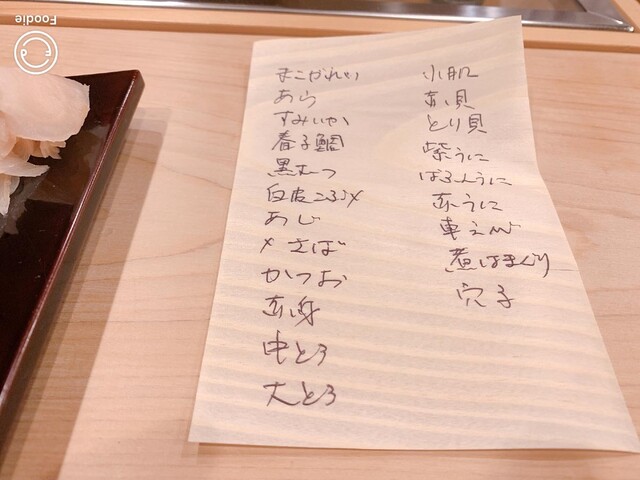 まこがれい
あら
すみいか
春子鯛
黒むつ
白皮こぶ〆
あじ
〆さば
かつお
赤身
中とろ
大とろ
小肌
赤貝
とり貝
紫うに
ばふんうに
赤うに
車えび
煮はまぐり
穴子
Foodie